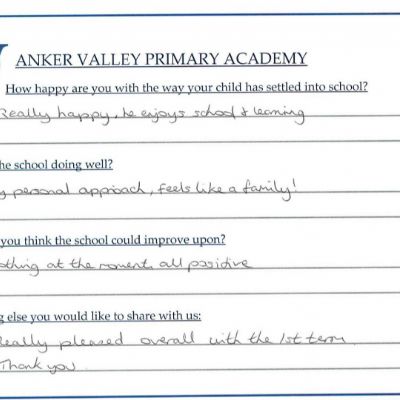 ANKER VALLEY PRIMARY ACADEMY
How happy are you with the way your child has settled into school?
Really happy, he enjoys school & learning
the school doing well?
personal approach, feels like a family!
you think the school could improve upon?
nothing at the moment. all positive
else you would like to share with us:
Really pleased overall with the 1st term.
Thank you